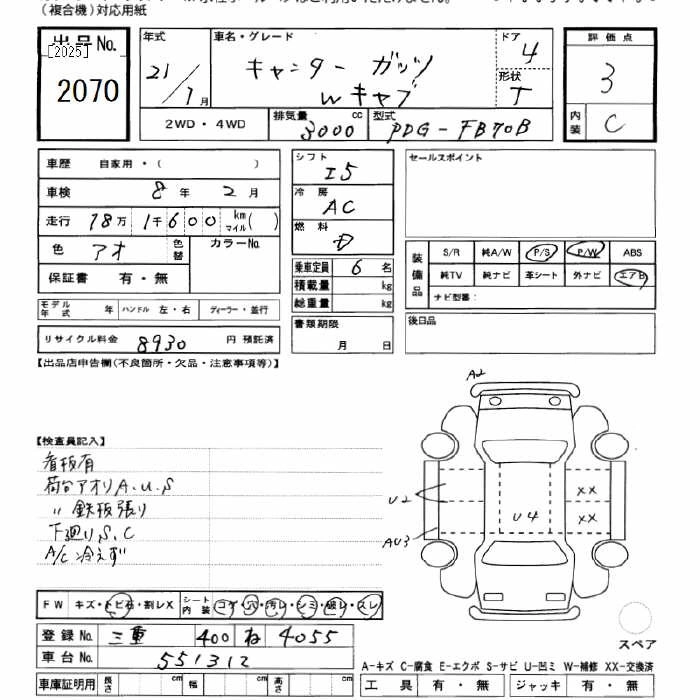 (複合機)対応用紙
出品No.
[2025]
2070
年式
21/7月
車名・グレード
キャンター ガッツ
Wキャブ
ドア
4
形状
T
評価点
3
内装
C
2WD・4WD
排気量
3000cc
型式
PDG-FB70B
車歴 自家用・( )
車検 8年 2月
走行 18万1千600 km マイル( )
色 アオ
色替
カラーNo.
保証書 有・無
モデル年式 年 ハンドル 左・右 ディーラー・並行
リサイクル料金 8930 円 預託済
シフト
I5
冷房
AC
燃料
D
乗車定員 6名
積載量 kg
総重量 kg
書類期限
月 日
セールスポイント
装備品
S/R 純A/W P/S P/W ABS
純TV 純ナビ 革シート 外ナビ エアB
ナビ型番:
後日品
【出品店申告欄(不良箇所・欠品・注意事項等)】
【検査員記入】
看板有
荷台アオリA.U.S
〃 鉄板張り
下廻りS.C
A/C冷えず
A2
U2
AU3
U4
XX
XX
FW キズ・トビ石・割レX シート内装 コゲ・穴・汚レ・シミ・破レ・スレ
登録No. 三重 400 ね 4055
車台No. 551312
車庫証明用 長さ cm 幅 cm 高さ cm
スペア
A-キズ C-腐食 E-エクボ S-サビ U-凹ミ W-補修 XX-交換済
工具 有・無 ジャッキ 有・無